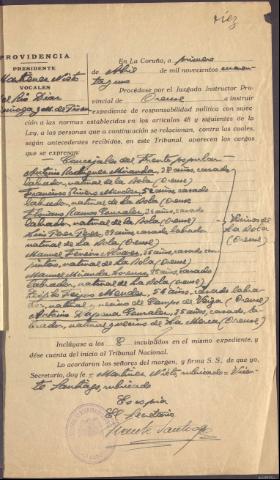 PROVIDENCIA
PRESIDENTE
Martínez Nieto
VOCALES
Del Río Díaz
En La Coruña, a primero
de Abril de mil novecientos cuaren-
ta y uno
Procédase por el Juzgado Instructor Pro-
vincial de Orense a instruir
expediente de responsabilidad política con suje-
ción a las normas establecidas en los artículos 48 y siguientes de la
Ley, a las personas que a continuación se relacionan, contra las cuales,
según antecedentes recibidos, en este Tribunal, aparecen los cargos
que se expresan:
Concejales del Frente popular
Antonio Rodríguez Miranda, 38 años, casado
labrador, natural de La Bola (Orense)
Francisco Rivero Mendez, 52 años, casado
labrador, natural de La Bola (Orense)
Florindo Ramos González, 35 años, casado
labrador, natural de La Bola (Orense)
Luis Pérez Pérez, 39 años, casado, labrador
natural de La Bola (Orense)
Manuel Ferreiro Alvarez, 36 años, casado car-
pintero, natural de La Bola (Orense)
Manuel Miranda Lorenzo, 35 años, casado
labrador, natural de La Bola (Orense)
Mendez, 56 años, casado labra-
dor, natural y vecino de Podentes de Veiga (Orense)
Antonio González, 35 años, casado, la-
brador, natural y vecino de La Merca (Orense)
Vecinos de
La Bola
(Orense)
Inclúyase a los 8 inculpados en el mismo expediente, y
dése cuenta del inicio al Tribunal Nacional.
Lo acordaron los señores del margen, y firma S. S. de que yo,
Secretario, doy fe = Martínez Nieto rubricado = Vicen-
te Santiago rubricado
Es copia
El Secretario
Vicente Santiago